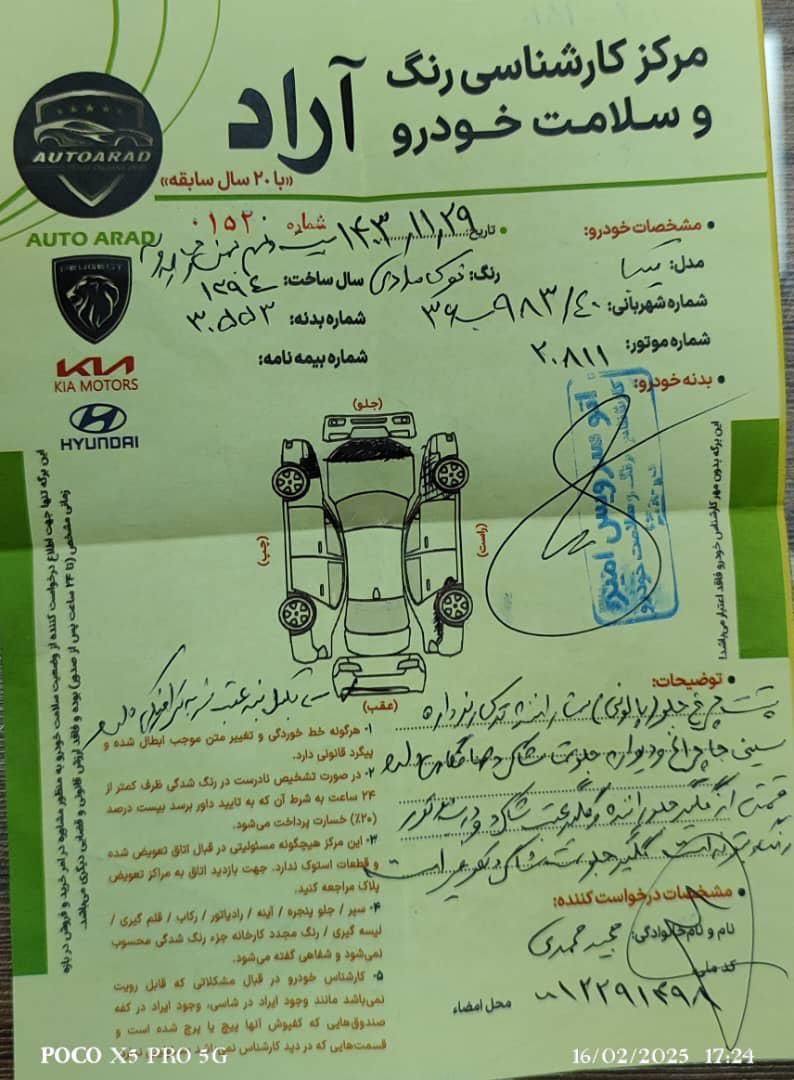 مرکز کارشناسی رنگ
و سلامت خودرو
آراد
«با ۲۰ سال سابقه»
AUTOARAD
AUTO ARAD
PEUGEOT
KIA
KIA MOTORS
HYUNDAI
شماره ۰۱۵۲۰
تاریخ: ۱۴۰۳/۱۱/۲۹
• مشخصات خودرو:
مدل: تیبا
رنگ: نوک مدادی
سال ساخت: ۱۳۹۴
شماره شهربانی: ۹۸۳/۴۰
شماره بدنه: ۳۰۵۵۳
شماره موتور: ۲۰۸۱۱
شماره بیمه نامه:
• بدنه خودرو:
(جلو)
(چپ)
(راست)
(عقب)
اتو سرویس امیر
کارشناسی رنگ و سلامت خودرو
این برگه بدون مهر کارشناس خودرو فاقد اعتبار می‌باشد!
این برگه تنها جهت اطلاع درخواست کننده از وضعیت سلامت خودرو به منظور مشاوره در امر خرید و فروش در بازه
زمانی مشخص (تا ۲۴ ساعت پس از صدور) بوده و فاقد ارزش قانونی و قضایی دیگری می‌باشد.
• توضیحات:
سینی جا چراغ و دیواره جلو سمت شاگرد
قسمتی از گلگیر جلو راننده و گلگیر عقب شاگرد و در
رنگ گلگیر جلو سمت شاگرد تعویض است
۱- هرگونه خط خوردگی و تغییر متن موجب ابطال شده و
پیگرد قانونی دارد.
۲- در صورت تشخیص نادرست در رنگ شدگی ظرف کمتر از
۲۴ ساعت به شرط آن که به تایید داور برسد بیست درصد
(۲۰٪) خسارت پرداخت می‌شود.
۳- این مرکز هیچگونه مسئولیتی در قبال اتاق تعویض شده
و قطعات استوک ندارد. جهت بازدید اتاق به مراکز تعویض
پلاک مراجعه کنید.
۴- سپر / جلو پنجره / آینه / رادیاتور / رکاب / قلم گیری /
لیسه گیری / رنگ مجدد کارخانه جزء رنگ شدگی محسوب
نمی‌شود و شفاهی گفته می‌شود.
۵- کارشناس خودرو در قبال مشکلاتی که قابل رویت
نمی‌باشد مانند وجود ایراد در شاسی، وجود ایراد در کفه
صندوق‌هایی که کفپوش آنها پیچ یا پرچ شده است و
قسمت‌هایی که در دید کارشناس
• مشخصات درخواست کننده:
نام و نام‌خانوادگی: مجید محمدی
کد ملی:
محل امضاء
POCO X5 PRO 5G
16/02/2025 17:24